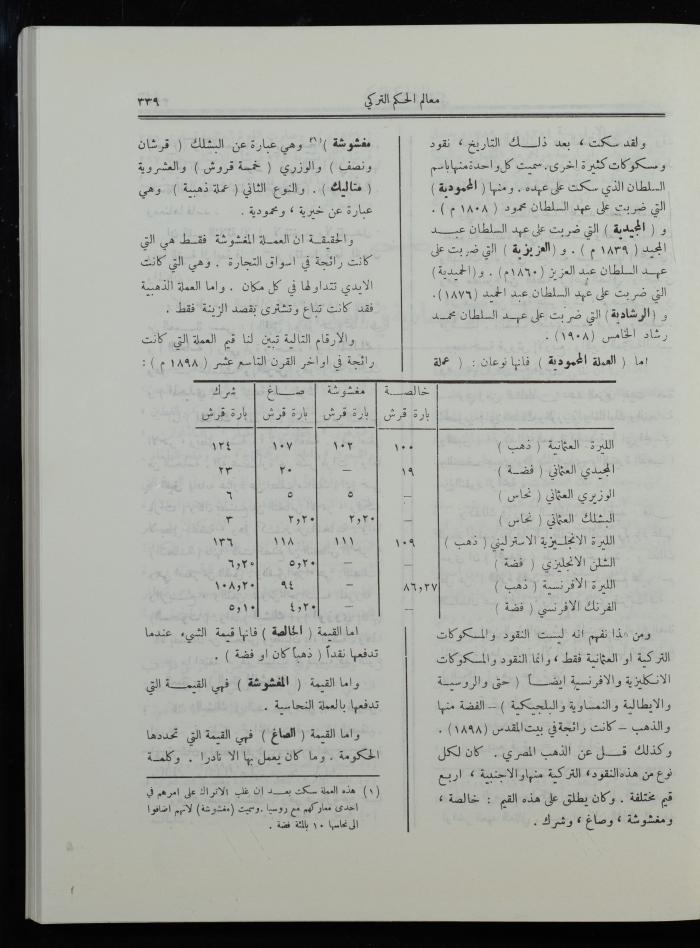 معالم الحكم التركي
٣٣٩
ولقد سكت ، بعد ذلك التاريخ ، نقود
ومسكوكات كثيرة اخرى. سميت كل واحدة منها باسم
السلطان الذي سكت على عهده . ومنها ( المحمودية )
التي ضربت على عهد السلطان محمود ( ١٨٠٨ م ) .
و ( المجيدية ) التي ضربت على عهد السلطان عبد
المجيد ( ١٨٣٩ م ) . و ( العزيزية ) التي ضربت على
عهد السلطان عبد العزيز (١٨٦٠م) . و (الحميدية)
التي ضربت على عهد السلطان عبد الحميد (١٨٧٦).
و ( الرشادية ) التي ضربت على عهد السلطان محمد
رشاد الخامس (١٩٠٨) .
اما ( العملة المحمودية ) فانها نوعان : ( عملة
مغشوشة )(١) وهي عبارة عن البشلك ( قرشان
ونصف ) والوزري ( خمسة قروش ) والعشروية
( متاليك ) . والنوع الثاني ( عملة ذهبية ) وهي
عبارة عن خيرية ، ومحمودية .
والحقيقة ان العملة المغشوشة فقط هي التي
كانت رائجة في اسواق التجارة . وهي التي كانت
الايدي تتداولها في كل مكان . واما العملة الذهبية
فقد كانت تباع وتشترى بقصد الزينة فقط .
والارقام التالية تبين لنا قيم العملة التي كانت
رائجة في اواخر القرن التاسع عشر ( ١٨٩٨ م ) :
خالصة مغشوشة صاغ شرك
بارة قرش بارة قرش بارة قرش بارة قرش
الليرة العثمانية ( ذهب ) ١٠٠ ١٠٢ ١٠٧ ١٢٤
المجيدي العثماني ( فضة ) ١٩ – ٢٠ ٢٣
الوزيري العثماني ( نحاس ) – ٥ ٥ ٦
البشلك العثماني ( نحاس ) – ٢,٢٠ ٢,٢٠ ٣
الليرة الانجليزية الاسترليني ( ذهب ) ١٠٩ ١١١ ١١٨ ١٣٦
الشلن الانجليزي ( فضة ) – – ٥,٢٠ ٦,٢٠
الليرة الافرنسية ( ذهب ) ٨٦,٢٧ – ٩٤ ١٠٨,٢٠
الفرنك الافرنسي ( فضة ) – – ٤,٢٠ ٥,١٠
ومن هذا نفهم انه ليست النقود والمسكوكات
التركية او العثمانية فقط ، وانما النقود والمسكوكات
الانكليزية والافرنسية ايضاً ( حتى والروسية
والايطالية والنمساوية والبلجيكية ) – الفضة منها
والذهب – كانت رائجة في بيت المقدس (١٨٩٨) .
وكذلك قل عن الذهب المصري . كان لكل
نوع من هذه النقود، التركية منها والاجنبية ، اربع
قيم مختلفة . وكان يطلق على هذه القيم : خالصة ،
ومغشوشة ، وصاغ ، وشرك .
اما القيمة ( الخالصة ) فانها قيمة الشيء عندما
تدفعها نقداً ( ذهباً كان او فضة ) .
واما القيمة ( المغشوشة ) فهي القيمة التي
تدفعها بالعملة النحاسية .
واما القيمة ( الصاغ ) فهي القيمة التي تحددها
الحكومة . وما كان يعمل بها الا نادرا . وكلمة
(١) هذه العملة سكت بعد ان غلب الاتراك على امرهم في
احدى معاركهم مع روسيا . وسميت (مغشوشة) لانهم اضافوا
الى نحاسها ١٠ بالمئة فضة .